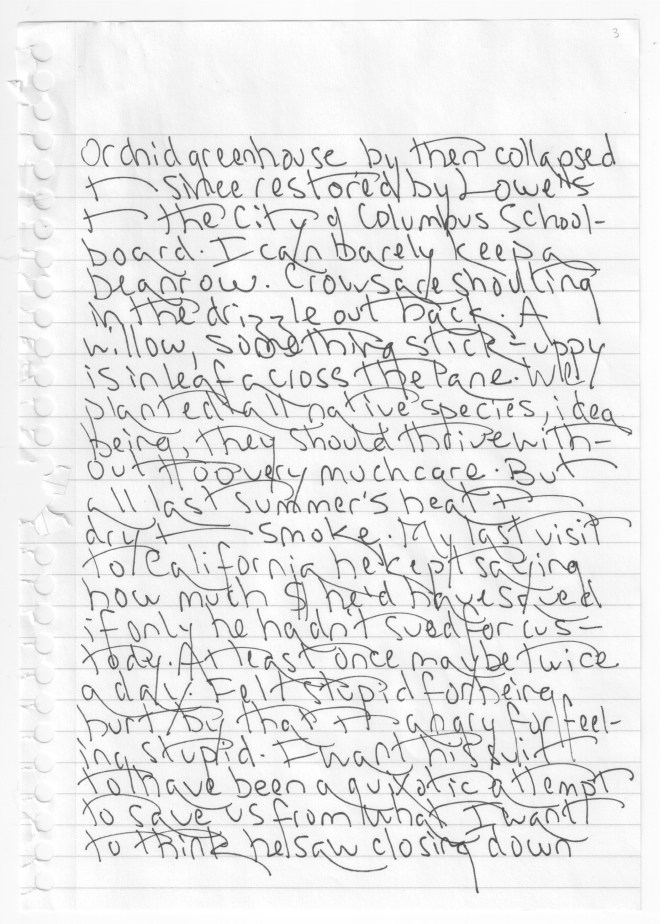 3
Orchid greenhouse by then collapsed
+ since restored by Lowe's
+ the City of Columbus School-
board. I can barely keep a
bean row. Crows are shouting
in the drizzle out back. A
willow, something stick-uppy
is in leaf across the pane. We'd
planted all native species, idea
being, they should thrive with-
out too very much care. But
all last summer's heat +
dry + smoke. My last visit
to California he kept saying
how much $ he'd have saved
if only he hadn't sued for cus-
tody. At least once maybe twice
a day. Felt stupid for being
hurt by that + angry for feel-
ing stupid. I want his suit
to have been a quixotic attempt
to save us from what I want
to think he saw closing down